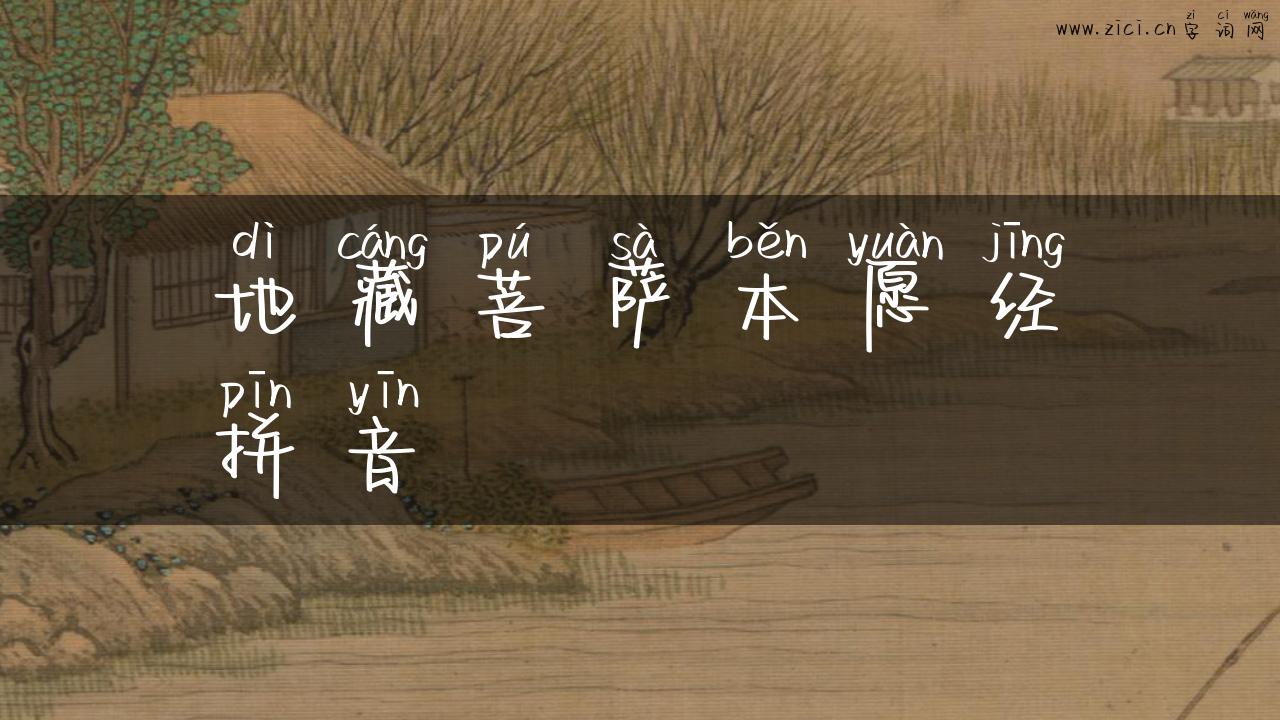 zì cí wǎng
www.zici.cn 字词网
dì cáng pú sà běn yuàn jīng
地藏菩萨本愿经
pīn yīn
拼音